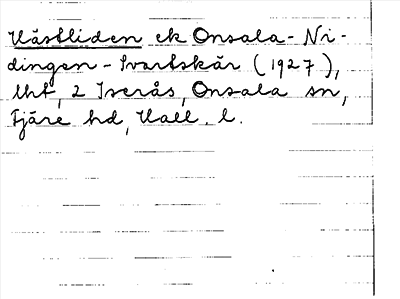 Västliden ek Onsala-Ni-
dingen-Svartskär (1927),
lht, 2 Iserås, Onsala sn,
Fjäre hd, Hall. l.